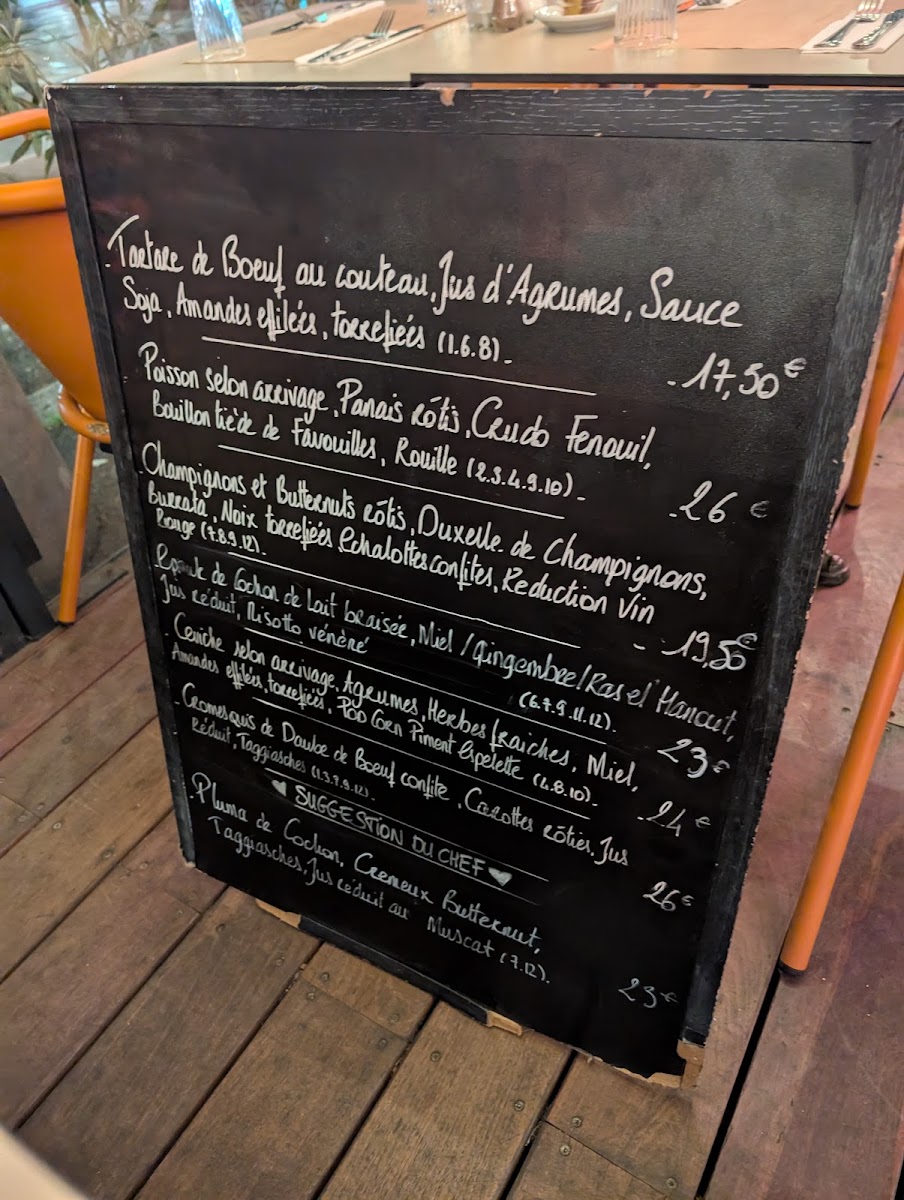 - Tartare de Boeuf au couteau, Jus d'Agrumes, Sauce
Soja, Amandes effilées, torrefiées (1.6.8).
- 17,50 €
- Poisson selon arrivage, Panais rôtis, Crudo Fenouil,
Bouillon tiède de Favouilles, Rouille (2.3.4.9.10).
- 26 €
- Champignons et Butternuts rôtis, Duxelle de Champignons,
Burrata, Noix torrefiées, Echalottes confites, Reduction vin
Rouge (7.8.9.12).
- 19,50 €
- Epaule de Cochon de Lait braisée, Miel / Gingembre / Ras el Hanout,
Jus réduit, Risotto vénéré (6.7.9.11.12).
23 €
- Ceviche selon arrivage, Agrumes, Herbes fraiches, Miel,
Amandes effilées, torrefiées, Pop Corn Piment Espelette (4.8.10).
- 24 €
- Cromesquis de Daube de Boeuf confite, Carottes rôties, Jus
Réduit, Taggiasches (1.3.7.9.12).
26 €
♥ SUGGESTION DU CHEF ♥
- Pluma de Cochon, Cremeux Butternut,
Taggiasches, Jus réduit au Muscat (7.12).
23 €